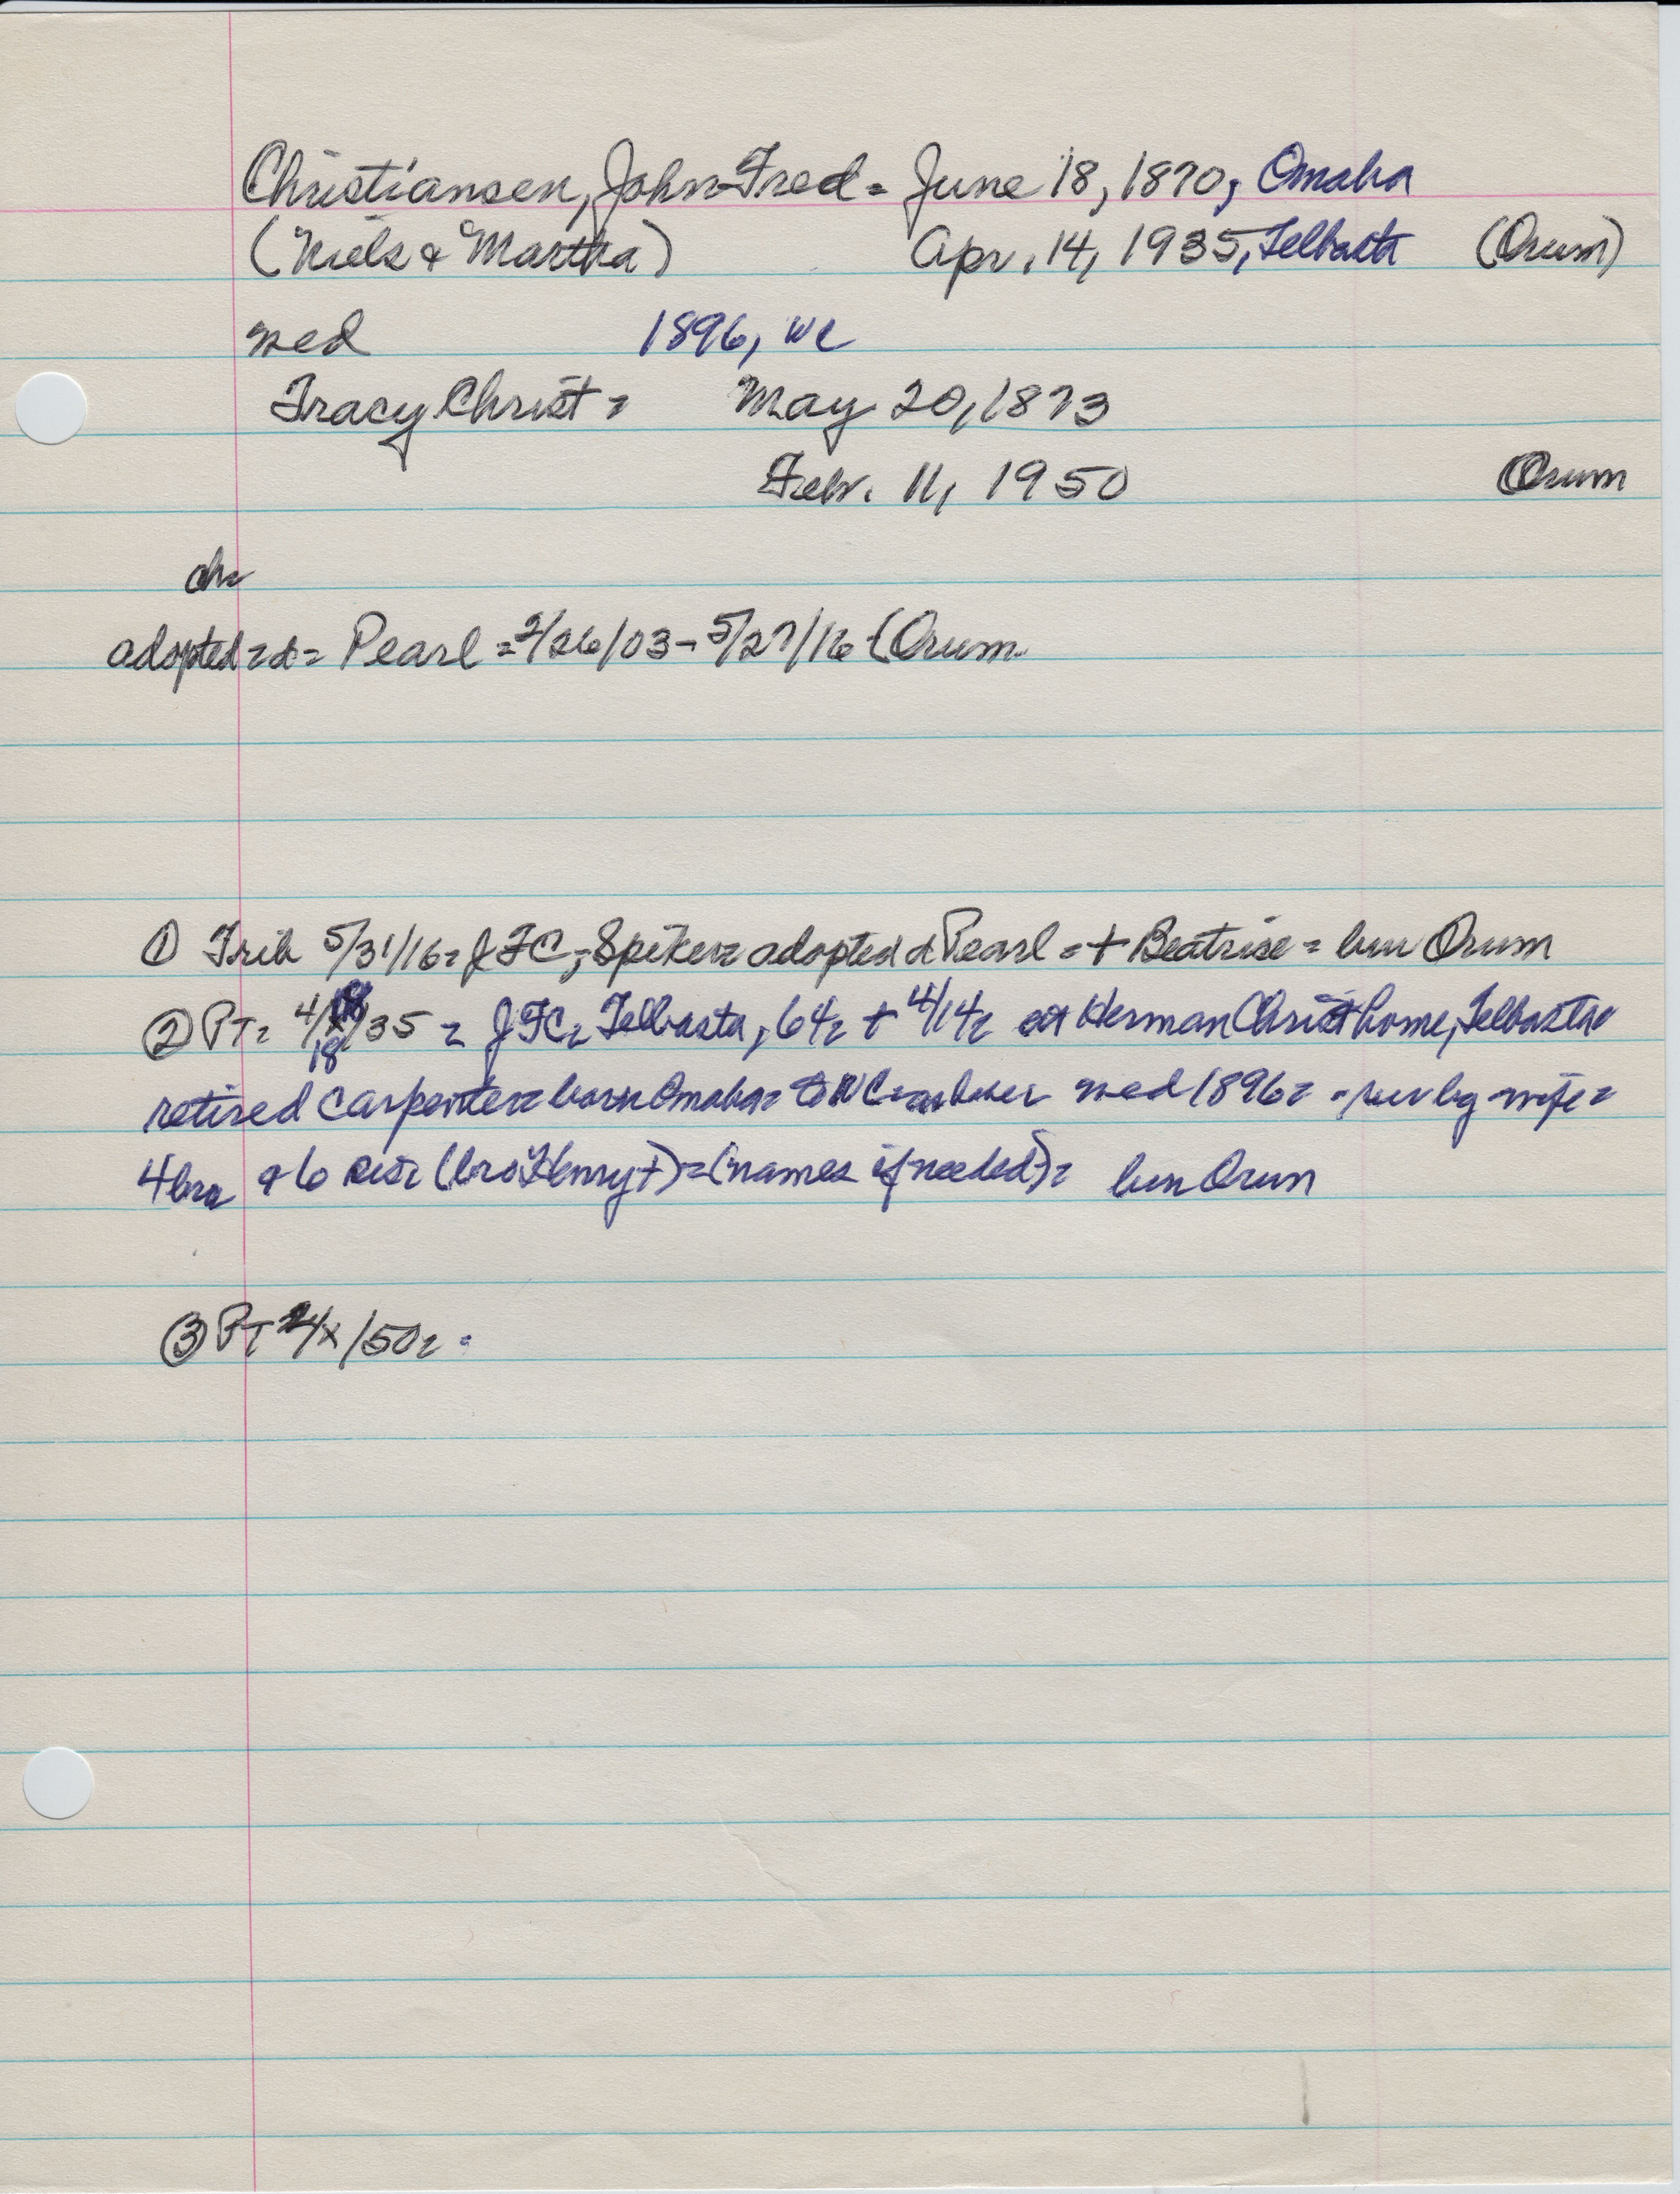 Christiansen, John Fred = June 18, 1870, Omaha
(Niels & Martha) Apr. 14, 1935, Telbasta (Orum)
wed 1896, WC
Tracy Christ = May 20, 1873
Febr. 11, 1950 Orum
ch=
adopted = d = Pearl = 2/26/03 - 5/27/16 (Orum
① Trib 5/31/16 = JFC, Spiker = adopted d Pearl = + Beatrise = bur Orum
② PT = 4/18/35 = JFC = Telbasta, 64 = + 4/14 = at Herman Christ home, Telbasta
retired carpenter = born Omaha = to WC = wed 1896 = surv by wife =
4 bro & 6 sis = (bro Henry +) = (names if needed) = bur Orum
③ PT 2/x/50 =